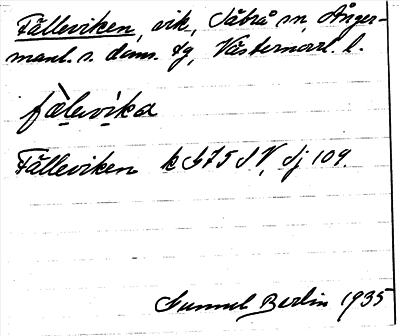 Fälleviken, vik, Säbrå sn, Ånger-
manl. s. doms. tg, Västernorrl. l.
fàlevíka
Fälleviken k 675 SV, Sj 109.
Gunnel Berlin 1935